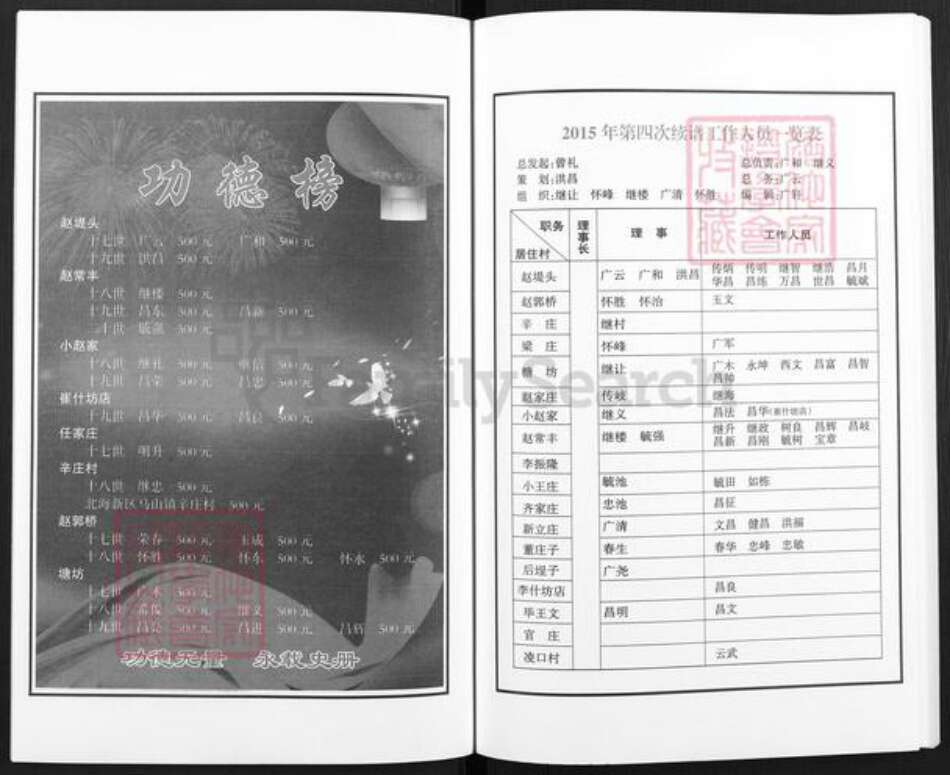 功德榜
赵堤头
十七世 广云 500元 广和 500元
十九世 洪昌 500元
赵常丰
十八世 继楼 500元
十九世 昌东 500元 昌新 500元
二十世 毓强 500元
小赵家
十八世 继礼 500元 500元
十九世 昌荣 500元 昌忠 500元
崔什坊店
十九世 昌华 500元 昌良 500元
任家庄
十七世 明升 500元
辛庄村
十八世 继忠 500元
北海新区马山镇辛庄村 500元
赵郭桥
十七世 荣春 500元 玉成 500元
十八世 怀胜 500元 怀东 500元 怀水 500元
塘坊
十七世 500元
十八世 500元 继义 500元
十九世 昌亮 500元 昌进 500元 500元
功德无量 永载史册
2015年第四次续谱工作人员一览表
总发起:曾礼 总负责:广和 继义
策 划:洪昌 总 务:广云
组 织:继让 怀峰 继楼 广清 怀胜 编 辑:广轩
职务 居住村 理事长 理 事 工作人员
赵堤头 广云 广和 洪昌 传炳 传明 继智 继浩 昌月
华昌 昌练 万昌 世昌 毓斌
赵郭桥 怀胜 怀治 玉文
辛 庄 继村
梁 庄 怀峰 广军
糖 坊 继让 广木 永坤 西文 昌富 昌智
昌帅
赵家庄 传岐 继海
小赵家 继义 昌法 昌华(崔什坊店)
赵常丰 继楼 毓强 继升 继政 树良 昌辉 昌岐
昌新 昌刚 毓树 宝章
李振隆
小王庄 毓池 毓田 如栋
齐家庄 忠池 昌征
新立庄 广清 文昌 健昌 洪福
董庄子 春生 春华 忠峰 忠敏
后堤子 广尧
李什坊店 昌良
毕王文 昌明 昌文
官 庄
凌口村 云武
FamilySearch